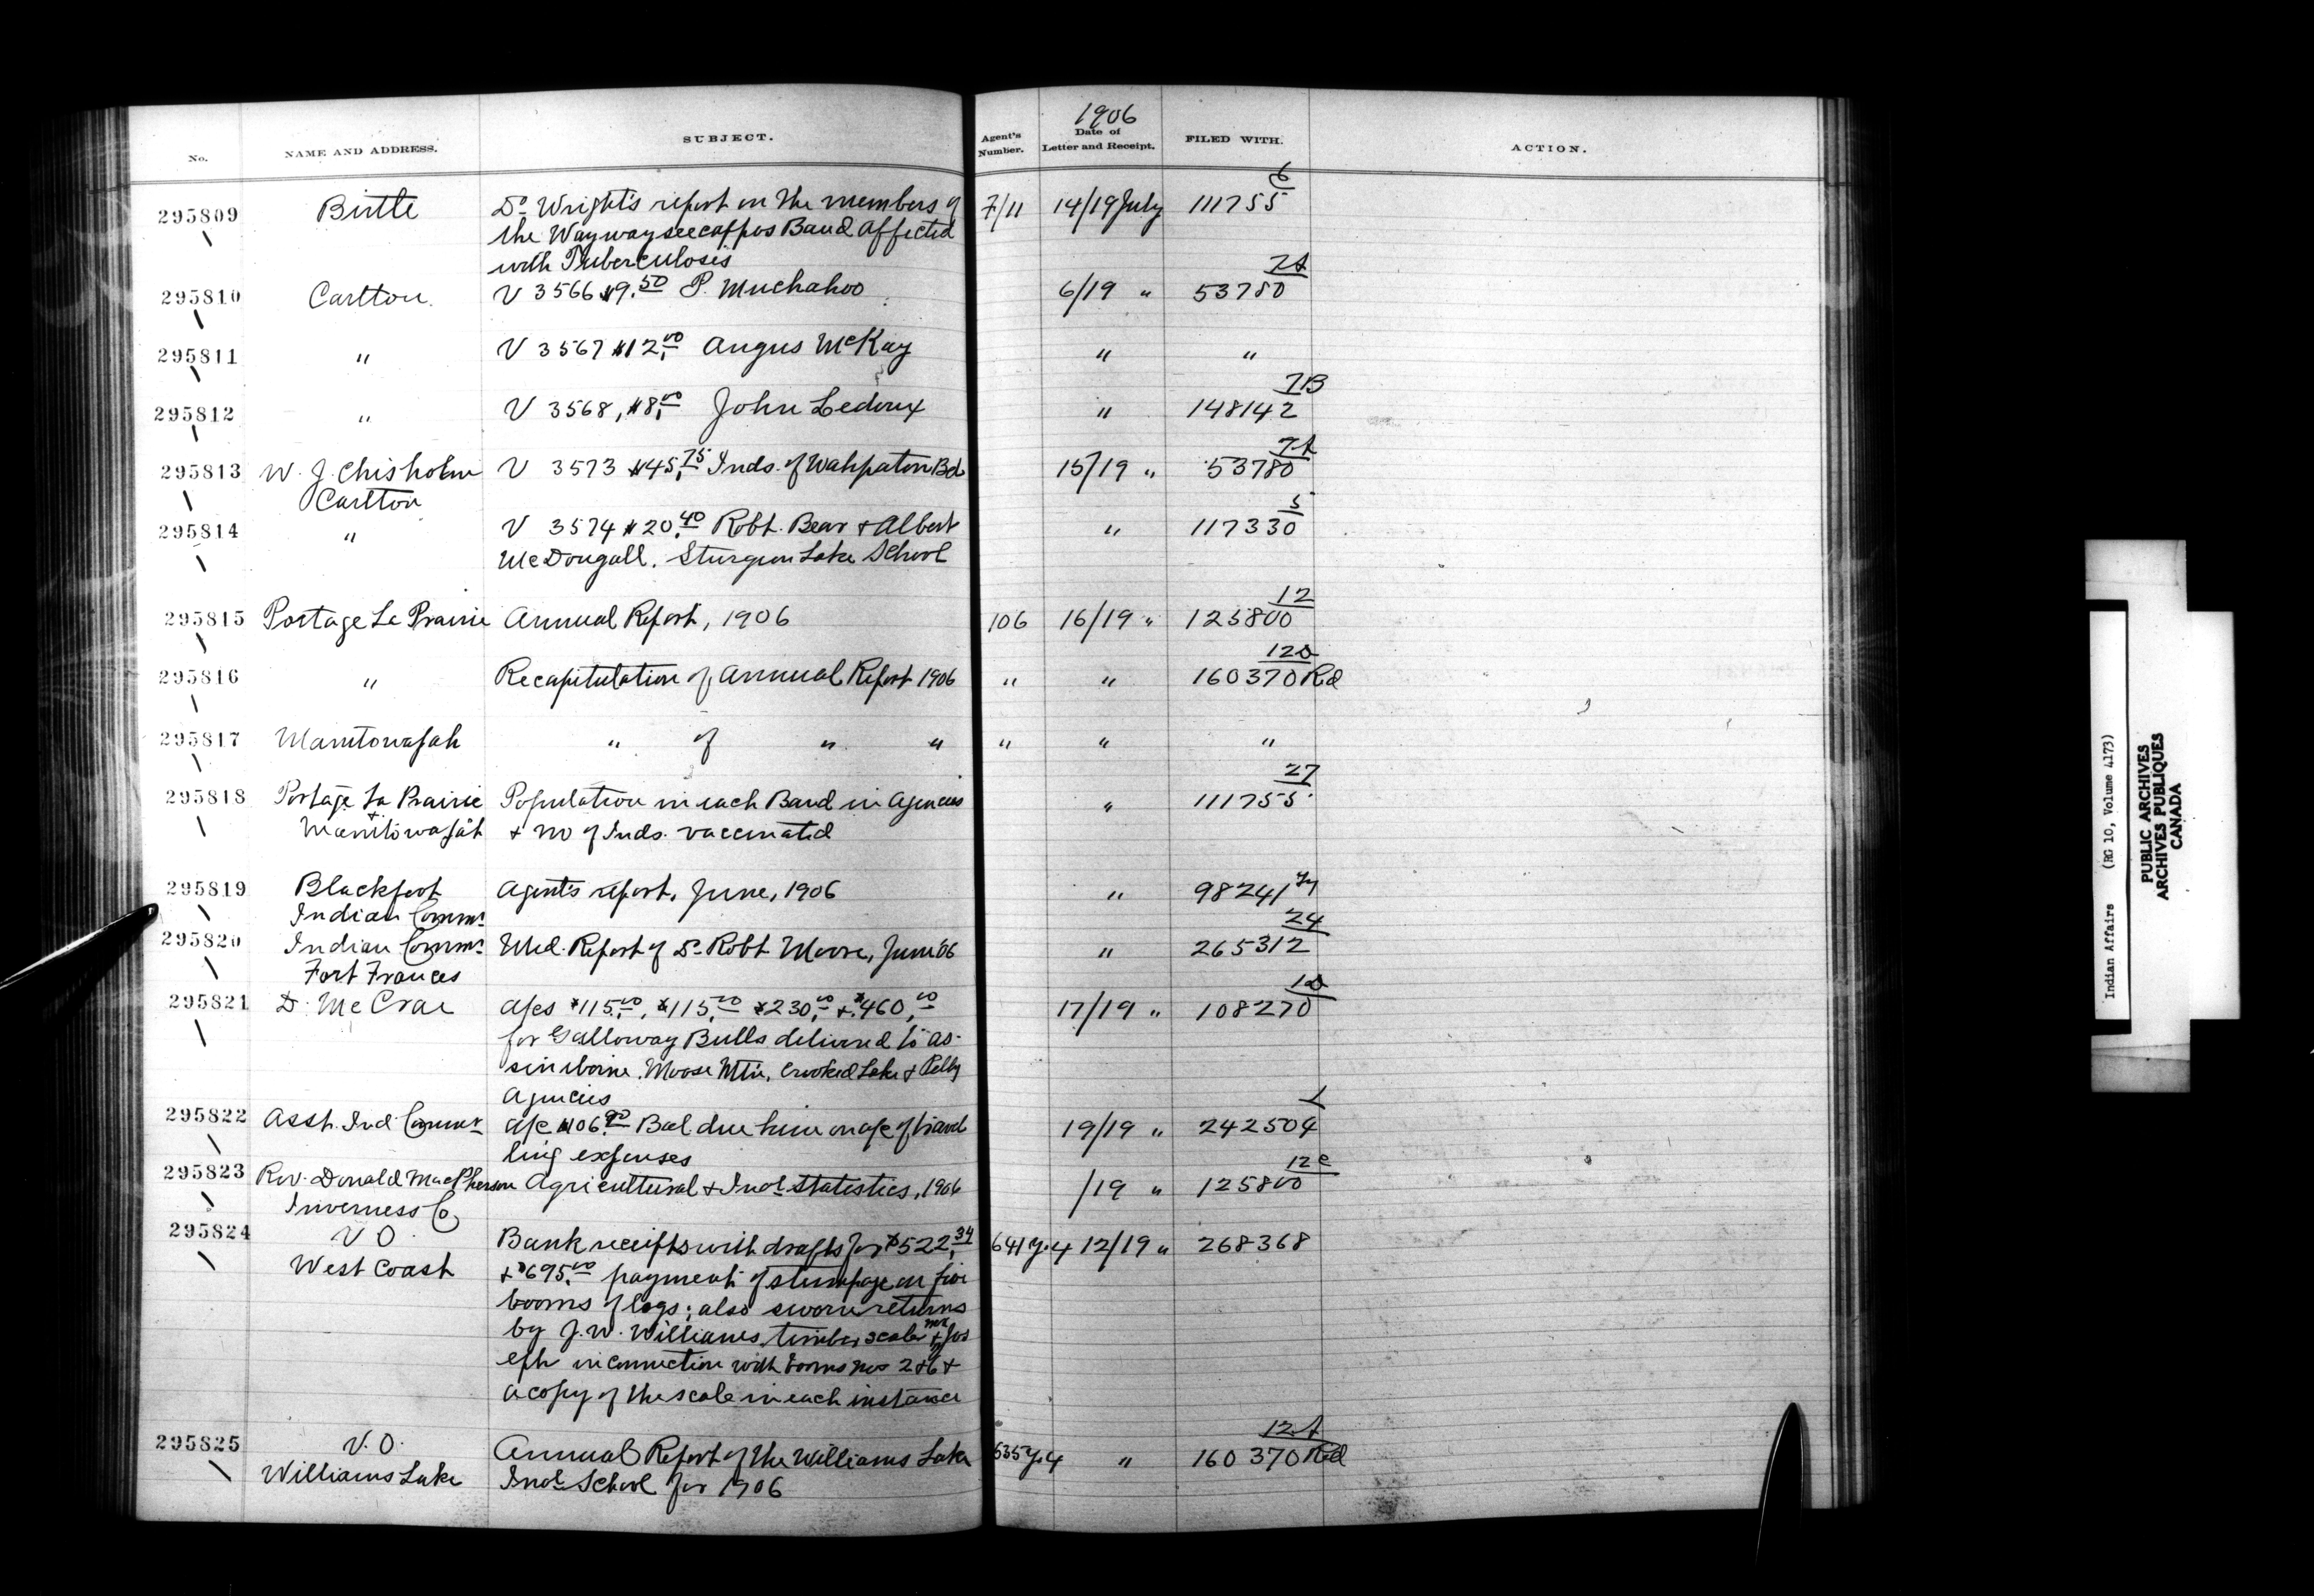 1906
No. NAME AND ADDRESS. SUBJECT. Agent's Number. Date of Letter and Receipt. FILED WITH. ACTION.
6
295809 Birtle Dr. Wright's report on the members of 7/11 14/19 July 111755
the Waywayseecappos Band affected
with Tuberculosis
7A
295810 Carlton. V 3566 $9.50 P. Muchahoo 6/19 " 53780
295811 " V 3567 $12.00 Angus McKay " "
7B
295812 " V 3568, $8.00 John Ledoux " 148142
7A
295813 W. J. Chisholm V 3573 $45.75 Inds. of Wahpaton Bd 15/19 " 53780
Carlton
5
295814 " V 3574 $20.40 Robt. Bear + Albert " 117330
McDougall. Sturgeon Lake School
12
295815 Portage La Prairie Annual Report, 1906 106 16/19 " 125800
12D
295816 " Recapitulation of Annual Report 1906 " " 160370 Rd
295817 Manitowapah " of " " " " "
27
295818 Portage La Prairie Population in each Band in Agencies " 111755
+ Manitowapah + no of Inds. vaccinated
295819 Blackfoot Agent's report, June, 1906 " 98241
Indian Commr.
24
295820 Indian Commr. Med. Report of Dr. Robt Moore, June '06 " 265312
Fort Frances
1D
295821 D. McCrae a/cs $115.00, $115.00 $230.00 + $460.00 17/19 " 108270
for Galloway Bulls delivered to As-
siniboine, Moose Mtn, Crooked Lake + Pelly
Agencies
295822 Asst. Ind Commr a/c $106.90 Bal due him on a/c of travel 19/19 " 242504
ling expenses
12c
295823 Rev. Donald MacPherson Agricultural + Indl. Statistics, 1906 /19 " 125800
Inverness Co
295824 V O Bank receipts with drafts for $522.34 641 Y.4 12/19 " 268368
West Coast + $695.00 payment of stumpage on five
booms of logs; also sworn returns
by J. W. Williams, timber scaler + Jos
eph in connection with booms nos 2 + 6 +
a copy of the scale in each instance
12A
295825 V. O. Annual Report of the Williams Lake 635 Y.4 " 160370 Rd
Williams Lake Indl. School for 1906
Indian Affairs (RG 10, Volume 4173)
PUBLIC ARCHIVES
ARCHIVES PUBLIQUES
CANADA